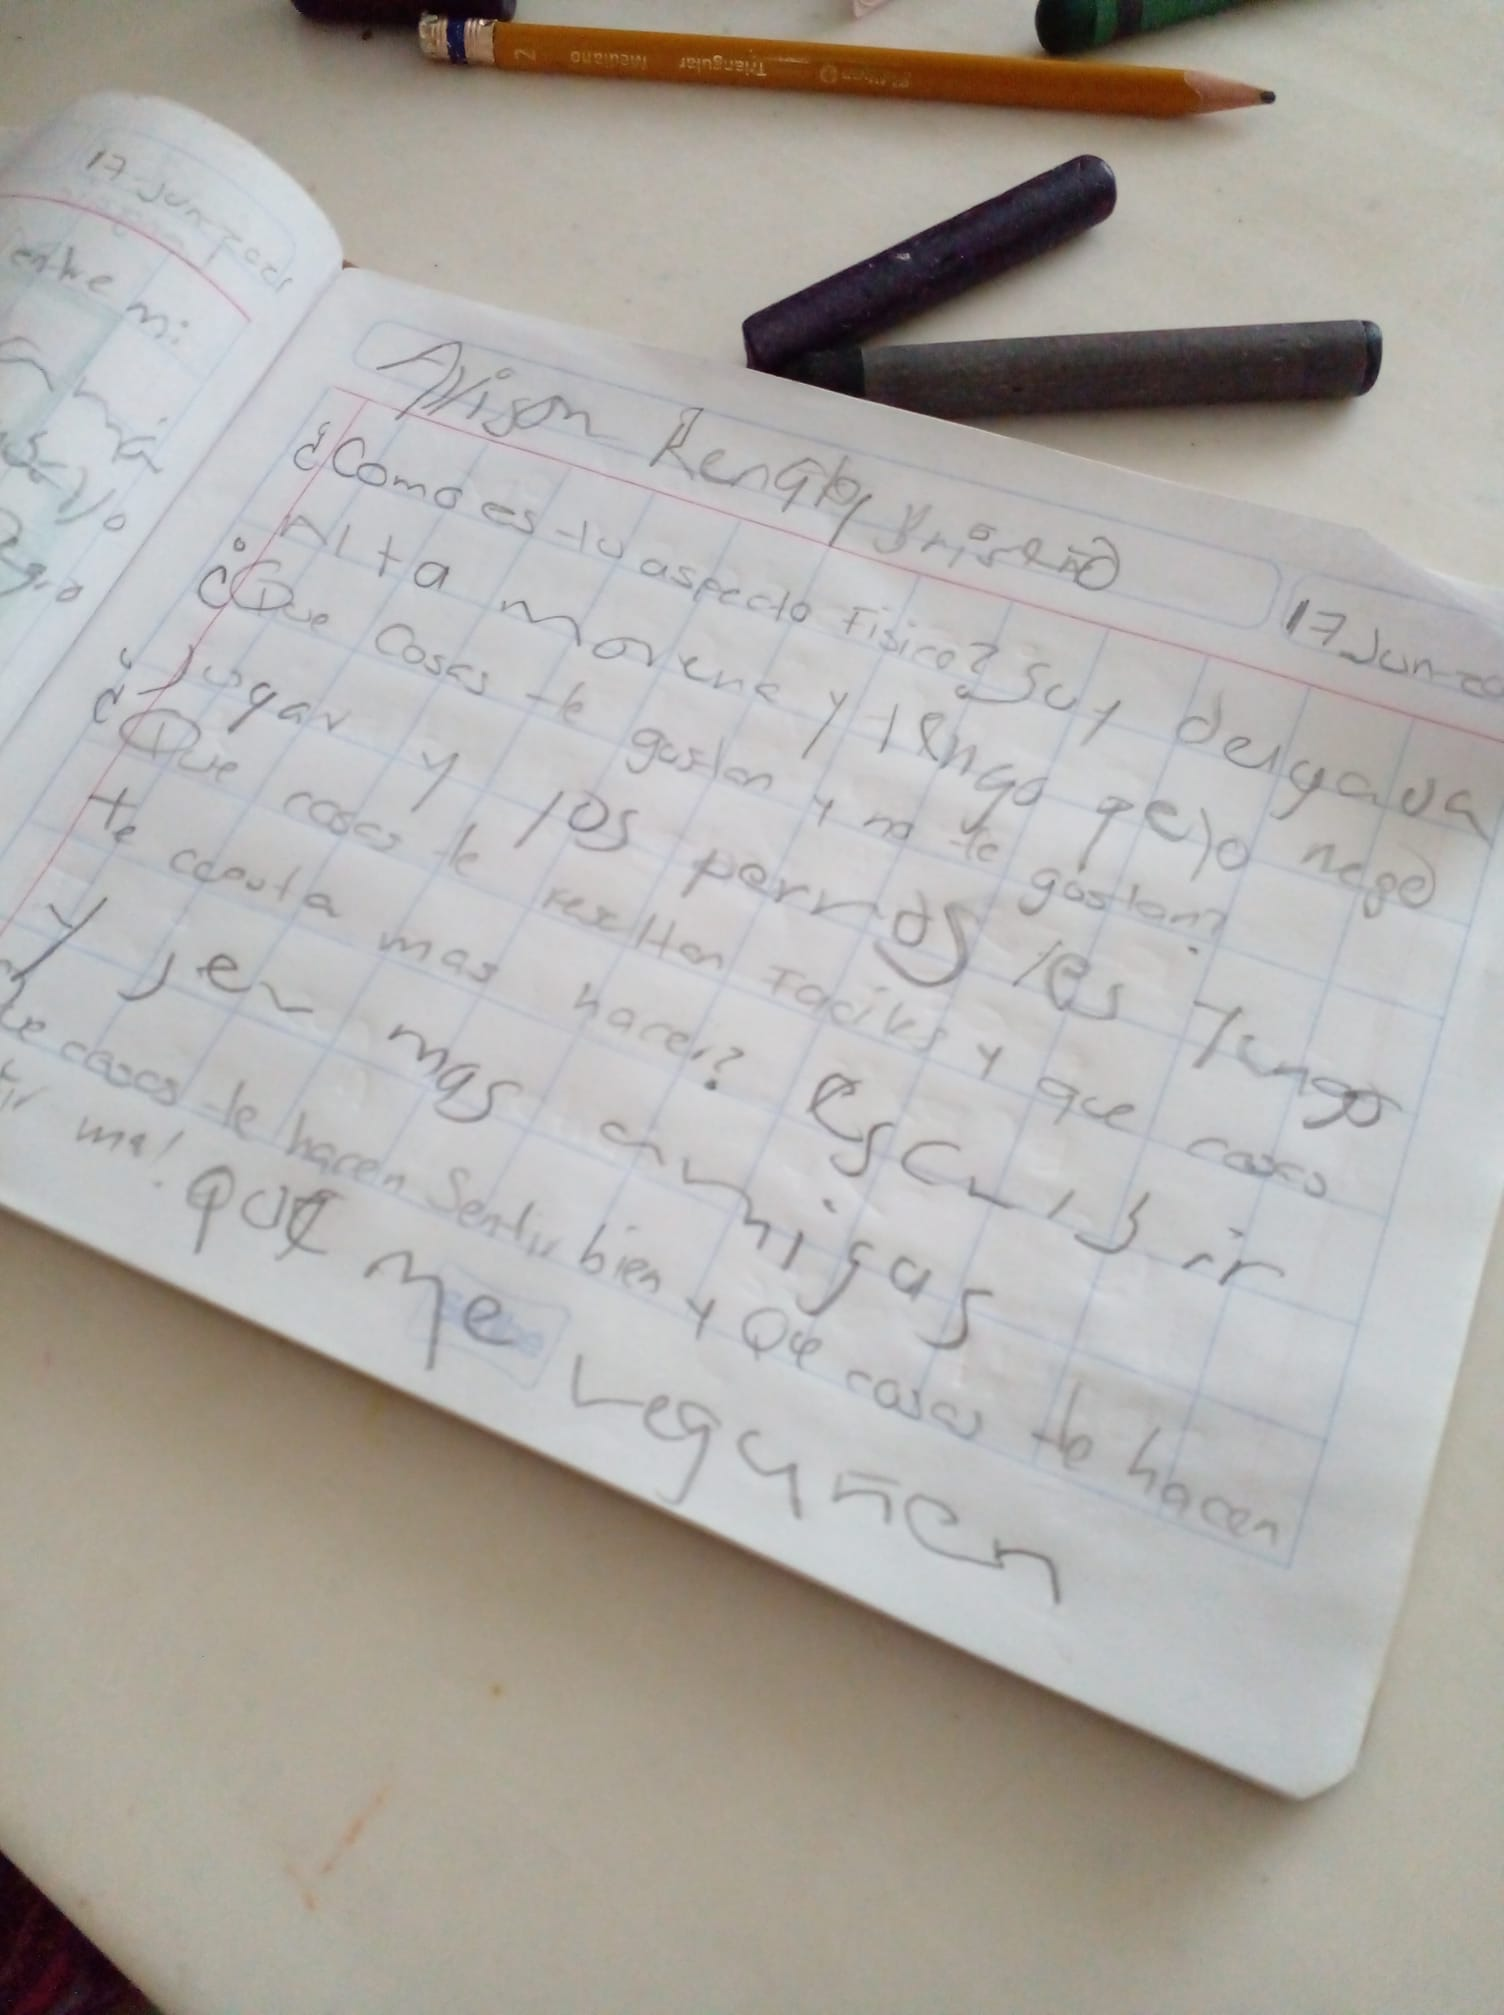 17-Jun-
entre mi
má
Allison Briseño
17 Jun-20
¿Como es tu aspecto Fisico? Suy delgada
Alta morena y tengo pelo nego
¿Que cosas te gustan y no te gustan?
Jugar y los perros les tengo
¿Que cosas te resultan Faciles y que cosas
te cuesta mas hacer? escribir
y ser mas amigas
ue cosas te hacen Sentir bien y Que cosas te hacen
tir mal. que me regañen
Triangular Mediano 2